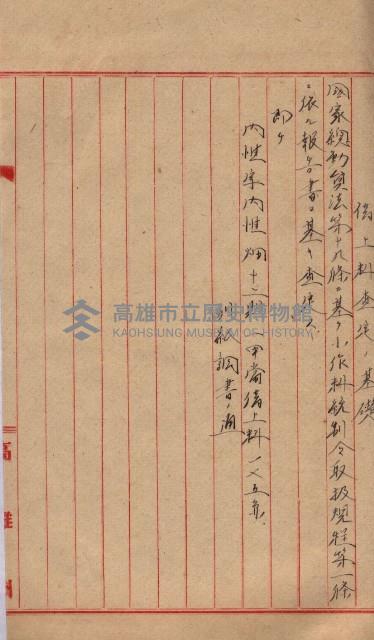 借上料查定ノ基礎
国家總動員法第十九條ニ基ク小作料統制令取扱規程第一條
ニ依ル報告書ニ基キ査定ス
即チ
内惟字内惟畑十二則甲当借上料一八五
別紙調書ノ通
高雄市立歷史博物館
KAOHSIUNG MUSEUM OF HISTORY
高雄州